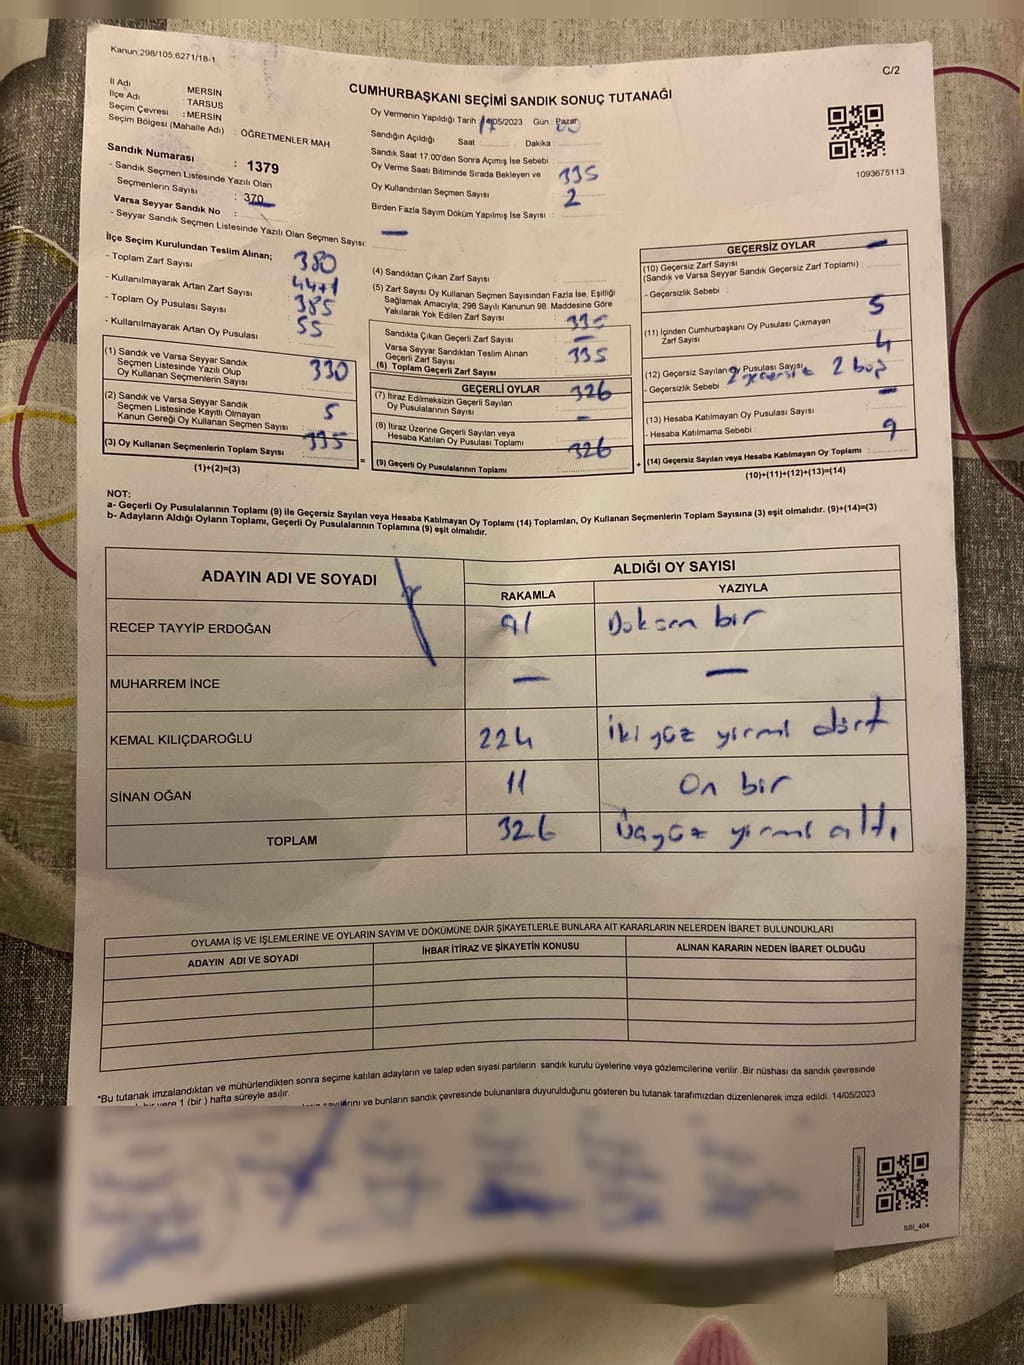 Kanun:298/105,6271/18-1
C/2
CUMHURBAŞKANI SEÇİMİ SANDIK SONUÇ TUTANAĞI
İl Adı : MERSİN
İlçe Adı : TARSUS
Seçim Çevresi : MERSİN
Seçim Bölgesi (Mahalle Adı) : ÖĞRETMENLER MAH.
Sandık Numarası : 1379
- Sandık Seçmen Listesinde Yazılı Olan
Seçmenlerin Sayısı : 370
Varsa Seyyar Sandık No :
- Seyyar Sandık Seçmen Listesinde Yazılı Olan Seçmen Sayısı: —
Oy Vermenin Yapıldığı Tarih : /05/2023 Gün : Pazar
Sandığın Açıldığı Saat Dakika :
Sandık Saat 17.00'den Sonra Açımış İse Sebebi :
Oy Verme Saati Bitiminde Sırada Bekleyen ve
Oy Kullandırılan Seçmen Sayısı 335
Birden Fazla Sayım Döküm Yapılmış İse Sayısı : 2
1093675113
İlçe Seçim Kurulundan Teslim Alınan;
- Toplam Zarf Sayısı 380
- Kullanılmayarak Artan Zarf Sayısı
- Toplam Oy Pusulası Sayısı 385
- Kullanılmayarak Artan Oy Pusulası 55
(1) Sandık ve Varsa Seyyar Sandık
Seçmen Listesinde Yazılı Olup
Oy Kullanan Seçmenlerin Sayısı 330
(2) Sandık ve Varsa Seyyar Sandık
Seçmen Listesinde Kayıtlı Olmayan
Kanun Gereği Oy Kullanan Seçmen Sayısı 5
(3) Oy Kullanan Seçmenlerin Toplam Sayısı 335
(1)+(2)=(3)
(4) Sandıktan Çıkan Zarf Sayısı
(5) Zarf Sayısı Oy Kullanan Seçmen Sayısından Fazla İse, Eşitliği
Sağlamak Amacıyla, 298 Sayılı Kanunun 98. Maddesine Göre
Yakılarak Yok Edilen Zarf Sayısı
Sandıkta Çıkan Geçerli Zarf Sayısı 335
Varsa Seyyar Sandıktan Teslim Alınan
Geçerli Zarf Sayısı —
(6) Toplam Geçerli Zarf Sayısı 335
GEÇERLİ OYLAR
(7) İtiraz Edilmeksizin Geçerli Sayılan
Oy Pusulalarının Sayısı 326
(8) İtiraz Üzerine Geçerli Sayılan veya
Hesaba Katılan Oy Pusulası Toplamı —
= (9) Geçerli Oy Pusulalarının Toplamı 326
GEÇERSİZ OYLAR
(10) Geçersiz Zarf Sayısı —
(Sandık ve Varsa Seyyar Sandık Geçersiz Zarf Toplamı) :
- Geçersizlik Sebebi :
(11) İçinden Cumhurbaşkanı Oy Pusulası Çıkmayan
Zarf Sayısı 5
(12) Geçersiz Sayılan Oy Pusulası Sayısı 4
- Geçersizlik Sebebi 2 geçersiz 2 boş
(13) Hesaba Katılmayan Oy Pusulası Sayısı —
- Hesaba Katılmama Sebebi :
+ (14) Geçersiz Sayılan veya Hesaba Katılmayan Oy Toplamı : 9
(10)+(11)+(12)+(13)=(14)
NOT:
a- Geçerli Oy Pusulalarının Toplamı (9) ile Geçersiz Sayılan veya Hesaba Katılmayan Oy Toplamı (14) Toplamları, Oy Kullanan Seçmenlerin Toplam Sayısına (3) eşit olmalıdır. (9)+(14)=(3)
b- Adayların Aldığı Oyların Toplamı, Geçerli Oy Pusulalarının Toplamına (9) eşit olmalıdır.
ADAYIN ADI VE SOYADI
ALDIĞI OY SAYISI
RAKAMLA YAZIYLA
RECEP TAYYİP ERDOĞAN 91 Doksan bir
MUHARREM İNCE — —
KEMAL KILIÇDAROĞLU 224 İki yüz yirmi dört
SİNAN OĞAN 11 On bir
TOPLAM 326 Üçyüz yirmi altı
OYLAMA İŞ VE İŞLEMLERİNE VE OYLARIN SAYIM VE DÖKÜMÜNE DAİR ŞİKAYETLERLE BUNLARA AİT KARARLARIN NELERDEN İBARET BULUNDUKLARI
ADAYIN ADI VE SOYADI İHBAR İTİRAZ VE ŞİKAYETİN KONUSU ALINAN KARARIN NEDEN İBARET OLDUĞU
*Bu tutanak imzalandıktan ve mühürlendikten sonra seçime katılan adayların ve talep eden siyasi partilerin sandık kurulu üyelerine veya gözlemcilerine verilir. Bir nüshası da sandık çevresinde
bir yere 1 (bir ) hafta süreyle asılır.
ve bunların sandık çevresinde bulunanlara duyurulduğunu gösteren bu tutanak tarafımızdan düzenlenerek imza edildi. 14/05/2023
SSI_404